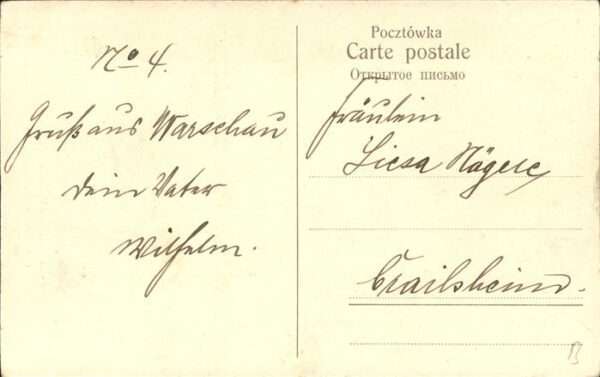 No 4.
Gruß aus Warschau
dein Vater
Wilhelm.
Pocztówka
Carte postale
Открытое письмо
Fräulein
Nägele
Crailsheim.